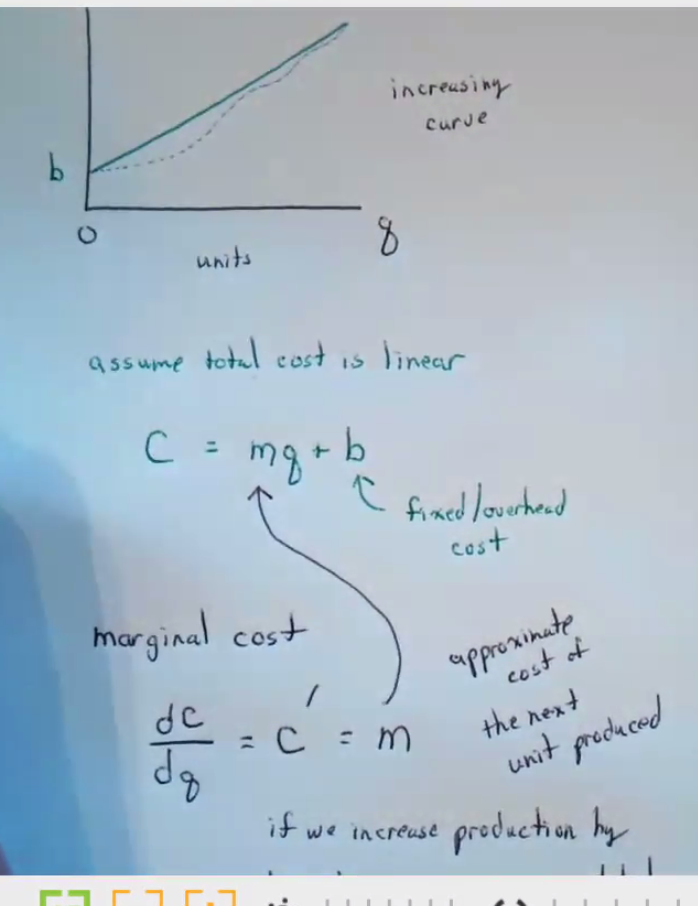 increasing
curve
b
0
q
units
assume total cost is linear
C = mq + b
fixed/overhead
cost
marginal cost
approximate
cost of
the next
unit produced
dC/dq = C' = m
if we increase production by